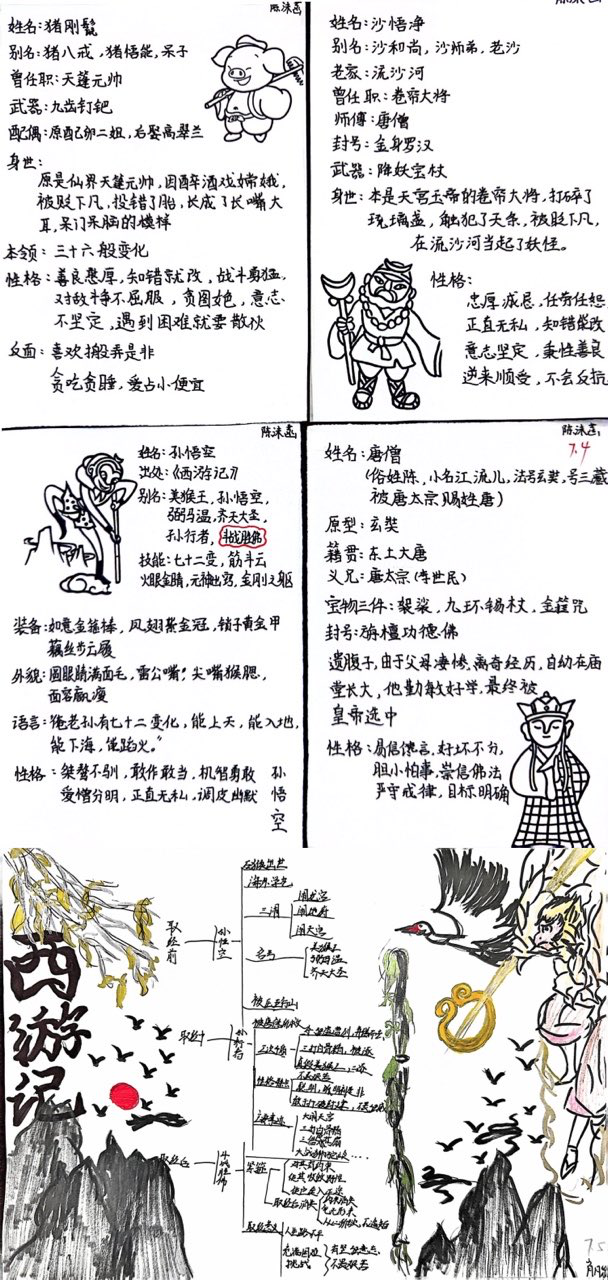 陈沫菡
姓名：猪刚鬣
别名：猪八戒，猪悟能，呆子
曾任职：天蓬元帅
武器：九齿钉钯
配偶：原配卵二姐，后娶高翠兰
身世：
原是仙界天蓬元帅，因醉酒戏嫦娥，
被贬下凡，投错了胎，长成了长嘴大
耳，呆门呆脑的模样
本领：三十六般变化
性格：善良憨厚，知错就改，战斗勇猛，
对敌斗争不屈服，贪图女色，意志
不坚定，遇到困难就要散伙
反面：喜欢搬弄是非
贪吃贪睡，爱占小便宜
姓名：沙悟净
别名：沙和尚，沙师弟，老沙
老家：流沙河
曾任职：卷帘大将
师傅：唐僧
封号：金身罗汉
武器：降妖宝杖
身世：本是天宫玉帝的卷帘大将，打碎了
琉璃盏，触犯了天条，被贬下凡，
在流沙河当起了妖怪。
性格：
忠厚诚恳，任劳任怨
正直无私，知错能改
意志坚定，秉性善良
逆来顺受，不会反抗
陈沫菡
姓名：孙悟空
出处：《西游记》
别名：美猴王，孙悟空，
弼马温，齐天大圣，
孙行者，斗战胜佛
技能：七十二变，筋斗云
火眼金睛，元神出窍，金刚之躯
装备：如意金箍棒，凤翅紫金冠，锁子黄金甲
藕丝步云履
外貌：圆眼睛满面毛，雷公嘴，尖嘴猴腮，
面容羸瘦
语言：“俺老孙有七十二变化，能上天，能入地，
能下海，能蹈火。”
性格：桀骜不驯，敢作敢当，机智勇敢
爱憎分明，正直无私，调皮幽默
孙悟空
陈沫菡
7.4
姓名：唐僧
（俗姓陈，小名江流儿，法号玄奘，号三藏
被唐太宗赐姓唐）
原型：玄奘
籍贯：东土大唐
义兄：唐太宗（李世民）
宝物三件：袈裟，九环锡杖，金箍咒
封号：旃檀功德佛
遗腹子，由于父母凄惨、离奇经历，自幼在庙
堂长大，他勤敏好学，最终被
皇帝选中
性格：易信谗言，好坏不分，
胆小怕事，崇信佛法
严守戒律，目标明确
西游记
取经前
孙悟空
三闹
闹龙宫
闹地府
闹天宫
名号
美猴王
弼马温
齐天大圣
被压五行山
取经中
孙行者
大闹天宫
三打白骨精
取经后
斗战胜佛
紧箍
7.5